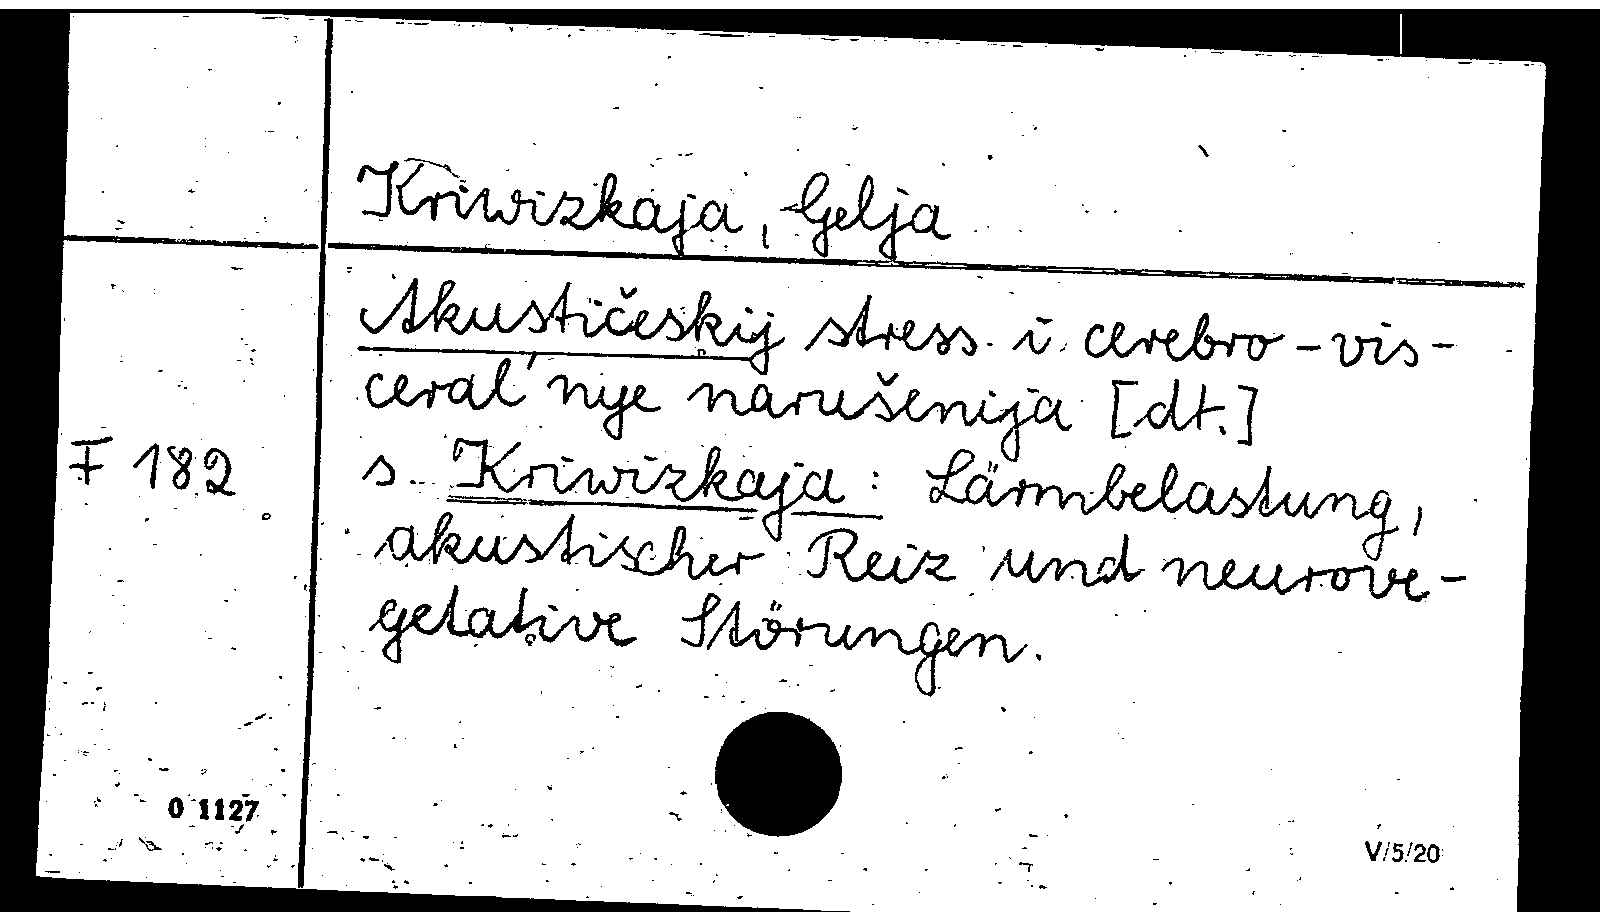 Kriwizkaja, Gelja
Akustičeskij stress i cerebro-vis-
ceral'nye narušenija [dt.]
F 182 s. Kriwizkaja: Lärmbelastung,
akustischer Reiz und neurove-
getative Störungen.
0 1127
V/5/20